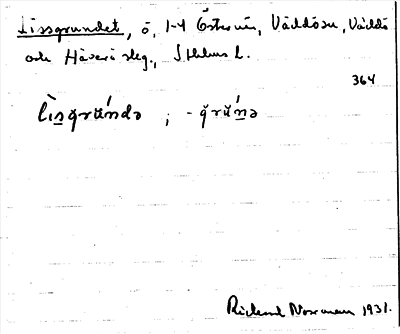 Lissgrundet, ö, 1-4 Östersün, Väddösu, Väddö
och Häverö skg., Sthlms l.
364
lìsgrún̲də ; -grún̲ə
Rickard Norrman 1931.